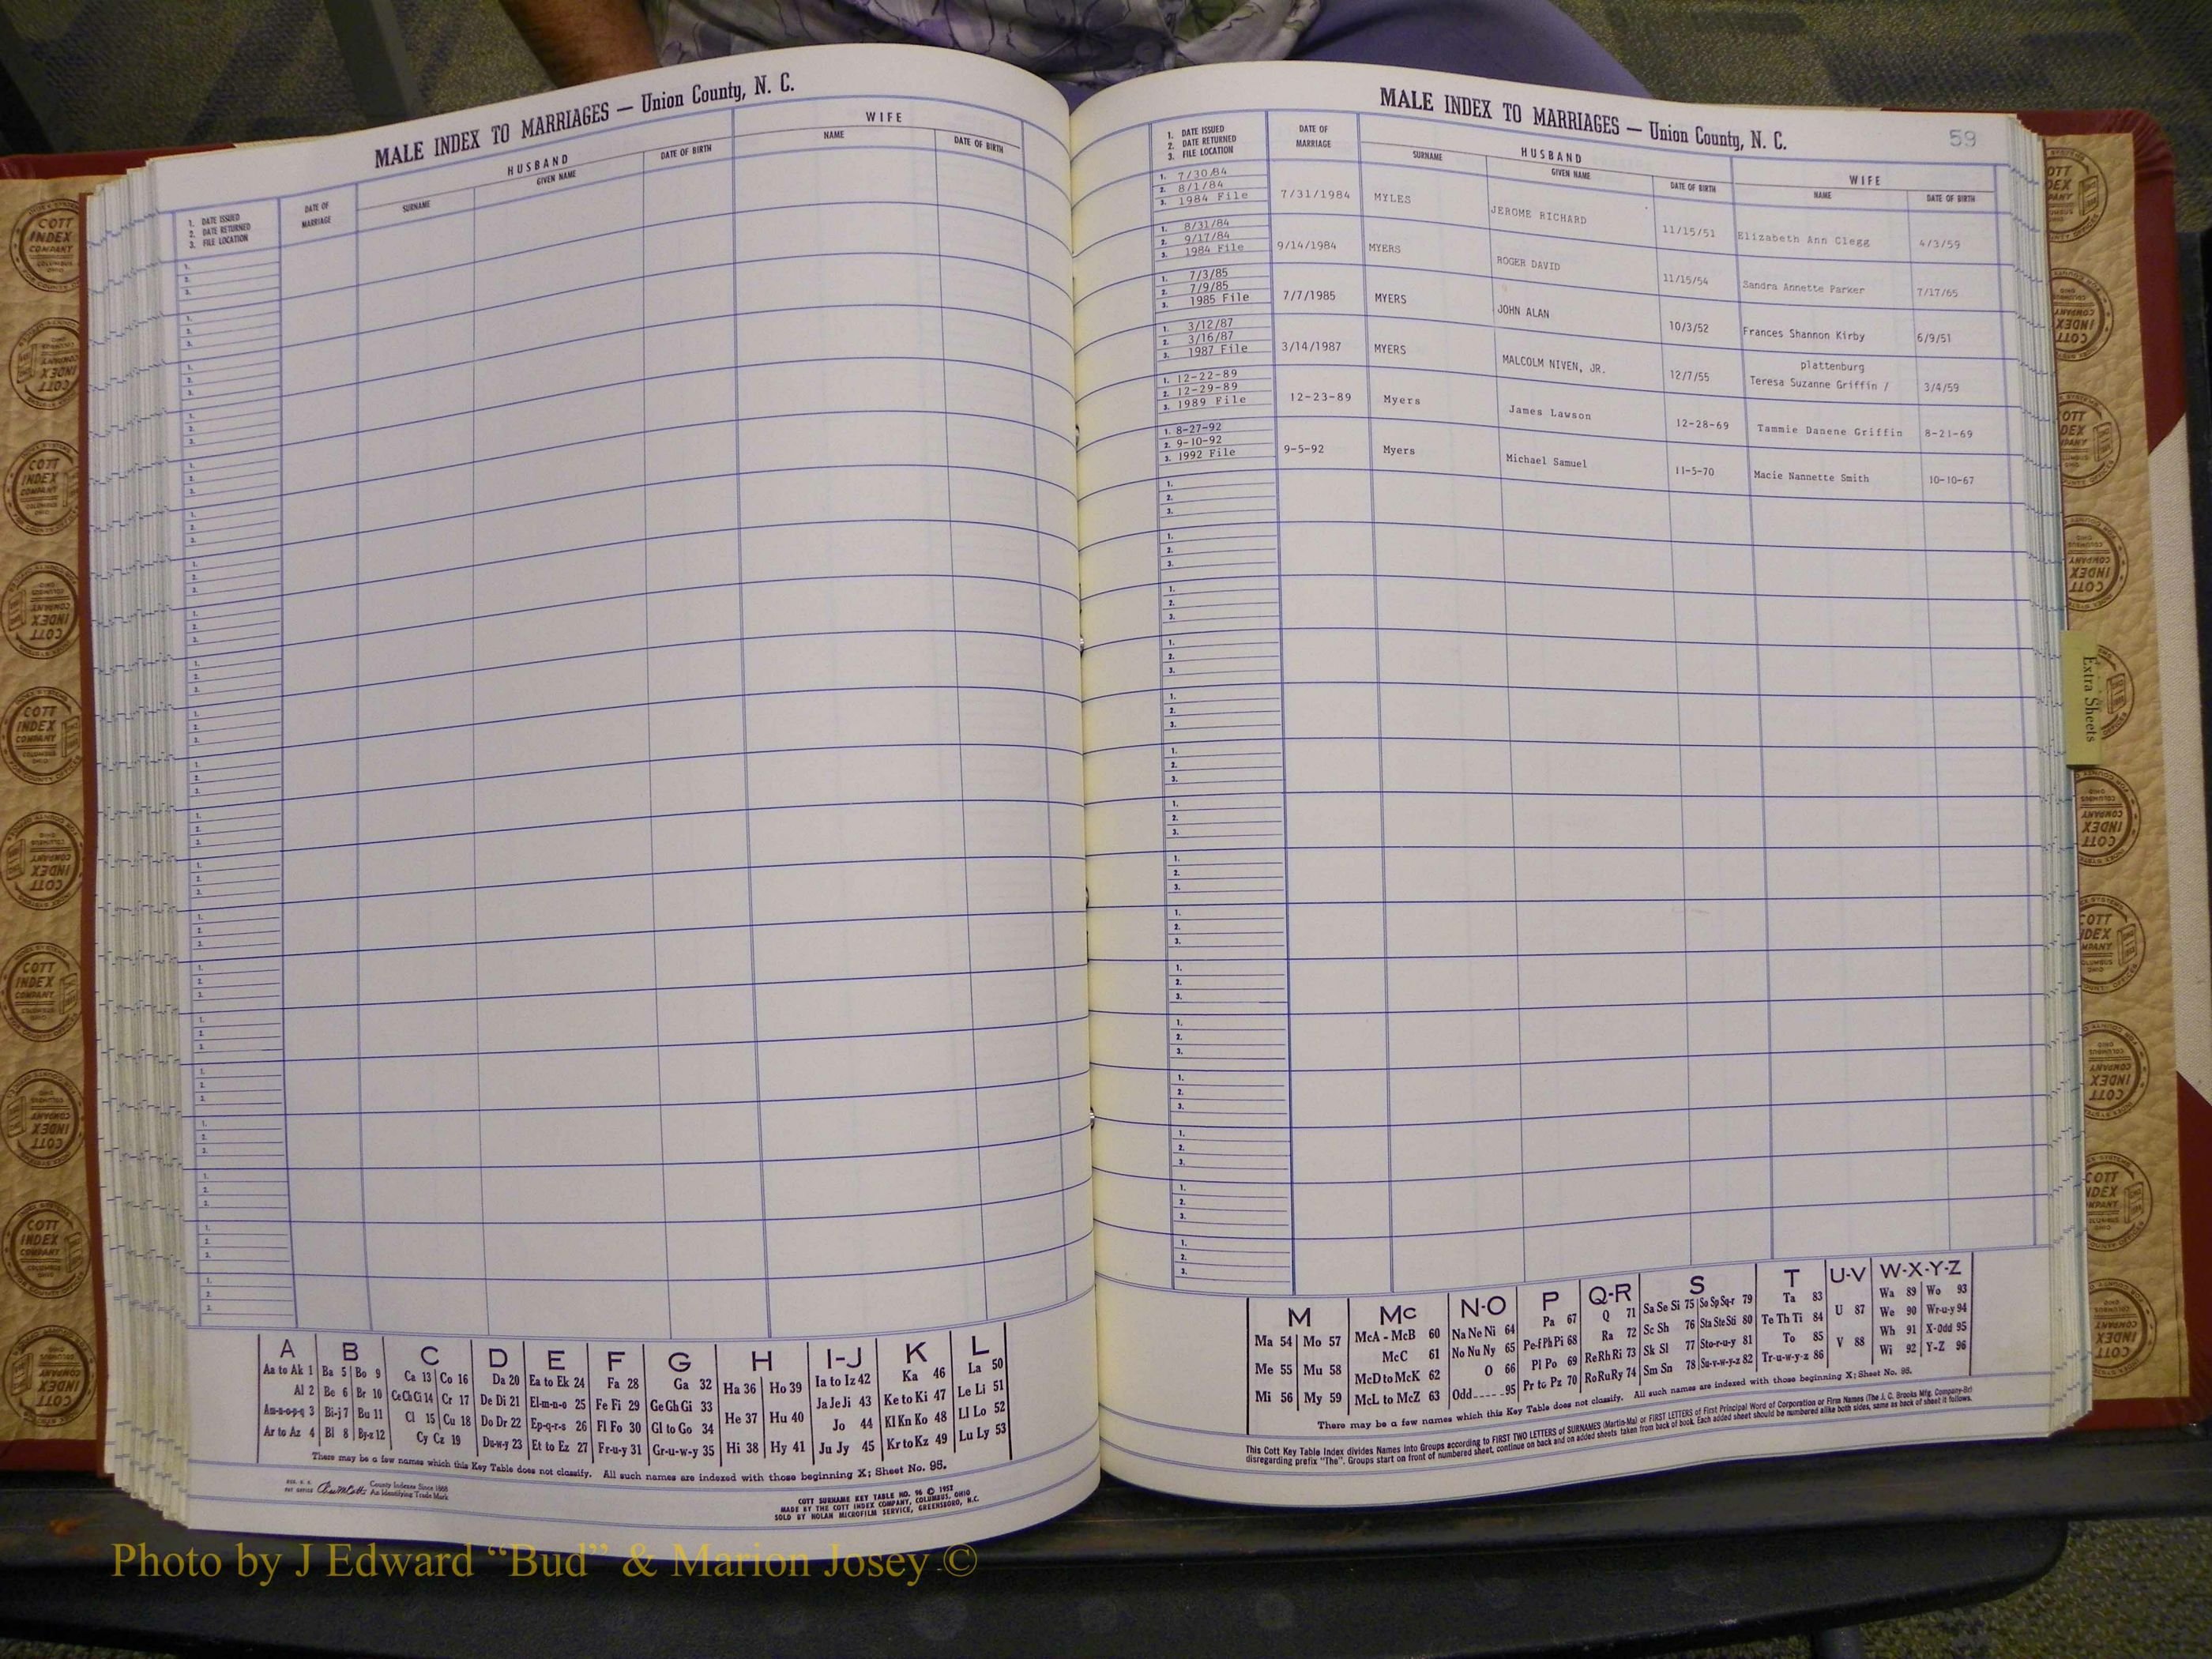 MALE INDEX TO MARRIAGES — Union County, N. C.
HUSBAND
WIFE
1. DATE ISSUED
2. DATE RETURNED
3. FILE LOCATION
DATE OF
MARRIAGE
SURNAME
GIVEN NAME
DATE OF BIRTH
NAME
DATE OF BIRTH
A
Aa to Ak 1
Al 2
Am-n-o-p-q 3
Ar to Az 4
B
Ba 5 Bo 9
Be 6 Br 10
Bi-j 7 Bu 11
Bl 8 By-z 12
C
Ca 13 Co 16
Ce Ch Ci 14 Cr 17
Cl 15 Cu 18
Cy Cz 19
D
Da 20
De Di 21
Do Dr 22
Du-w-y 23
E
Ea to Ek 24
El-m-n-o 25
Ep-q-r-s 26
Et to Ez 27
F
Fa 28
Fe Fi 29
Fl Fo 30
Fr-u-y 31
G
Ga 32
Ge Gh Gi 33
Gl to Go 34
Gr-u-w-y 35
H
Ha 36 Ho 39
He 37 Hu 40
Hi 38 Hy 41
I-J
Ia to Iz 42
Ja Je Ji 43
Jo 44
Ju Jy 45
K
Ka 46
Ke to Ki 47
Kl Kn Ko 48
Kr to Kz 49
L
La 50
Le Li 51
Ll Lo 52
Lu Ly 53
There may be a few names which this Key Table does not classify. All such names are indexed with those beginning X; Sheet No. 95.
County Indexes Since 1888
An Identifying Trade Mark
COTT SURNAME KEY TABLE NO. 96 © 1952
MADE BY THE COTT INDEX COMPANY, COLUMBUS, OHIO
SOLD BY NOLAN MICROFILM SERVICE, GREENSBORO, N.C.
MALE INDEX TO MARRIAGES — Union County, N. C.
59
1. DATE ISSUED
2. DATE RETURNED
3. FILE LOCATION
DATE OF
MARRIAGE
HUSBAND
SURNAME
GIVEN NAME
DATE OF BIRTH
WIFE
NAME
DATE OF BIRTH
1. 7/30/84
2. 8/1/84
3. 1984 File
7/31/1984 MYLES JEROME RICHARD 11/15/51 Elizabeth Ann Clegg 4/3/59
1. 8/31/84
2. 9/17/84
3. 1984 File
9/14/1984 MYERS ROGER DAVID 11/15/54 Sandra Annette Parker 7/17/65
1. 7/3/85
2. 7/9/85
3. 1985 File
7/7/1985 MYERS JOHN ALAN 10/3/52 Frances Shannon Kirby 6/9/51
1. 3/12/87
2. 3/16/87
3. 1987 File
3/14/1987 MYERS MALCOLM NIVEN, JR. 12/7/55 plattenburg
Teresa Suzanne Griffin / 3/4/59
1. 12-22-89
2. 12-29-89
3. 1989 File
12-23-89 Myers James Lawson 12-28-69 Tammie Danene Griffin 8-21-69
1. 8-27-92
2. 9-10-92
3. 1992 File
9-5-92 Myers Michael Samuel 11-5-70 Macie Nannette Smith 10-10-67
Extra Sheets
M
Ma 54 Mo 57
Me 55 Mu 58
Mi 56 My 59
Mc
McA - McB 60
McC 61
McD to McK 62
McL to McZ 63
N-O
Na Ne Ni 64
No Nu Ny 65
O 66
Odd 95
P
Pa 67
Pe-f Ph Pi 68
Pl Po 69
Pr to Pz 70
Q-R
Q 71
Ra 72
Re Rh Ri 73
Ro Ru Ry 74
S
Sa Se Si 75 So Sp Sq-r 79
Sc Sh 76 Sta Ste Sti 80
Sk Sl 77 Sto-r-u-y 81
Sm Sn 78 Su-v-w-y-z 82
T
Ta 83
Te Th Ti 84
To 85
Tr-u-w-y-z 86
U-V
U 87
V 88
W-X-Y-Z
Wa 89 Wo 93
We 90 Wr-u-y 94
Wh 91 X-Odd 95
Wi 92 Y-Z 96
There may be a few names which this Key Table does not classify. All such names are indexed with those beginning X; Sheet No. 95.
This Cott Key Table Index divides Names into Groups according to FIRST TWO LETTERS of SURNAMES (Martin-Ma) or FIRST LETTERS of First Principal Word of Corporation or Firm Names (The J. C. Brooks Mfg. Company-Br)
disregarding prefix "The". Groups start on front of numbered sheet, continue on back and on added sheets taken from back of book. Each added sheet should be numbered alike both sides, same as back of sheet it follows.
COTT
INDEX
COMPANY
COLUMBUS
OHIO
Photo by J Edward “Bud” & Marion Josey ©